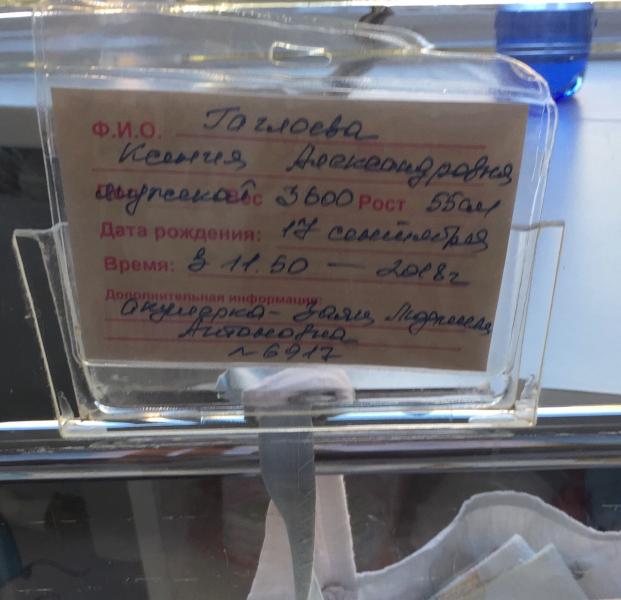 Ф.И.О. Таглоева
Ксения Александровна
мужской Вес 3600 Рост 55см
Дата рождения: 17 сентября
Время: В 11.50 — 2018г
Дополнительная информация:
акушерка-
Антоновна
№6917